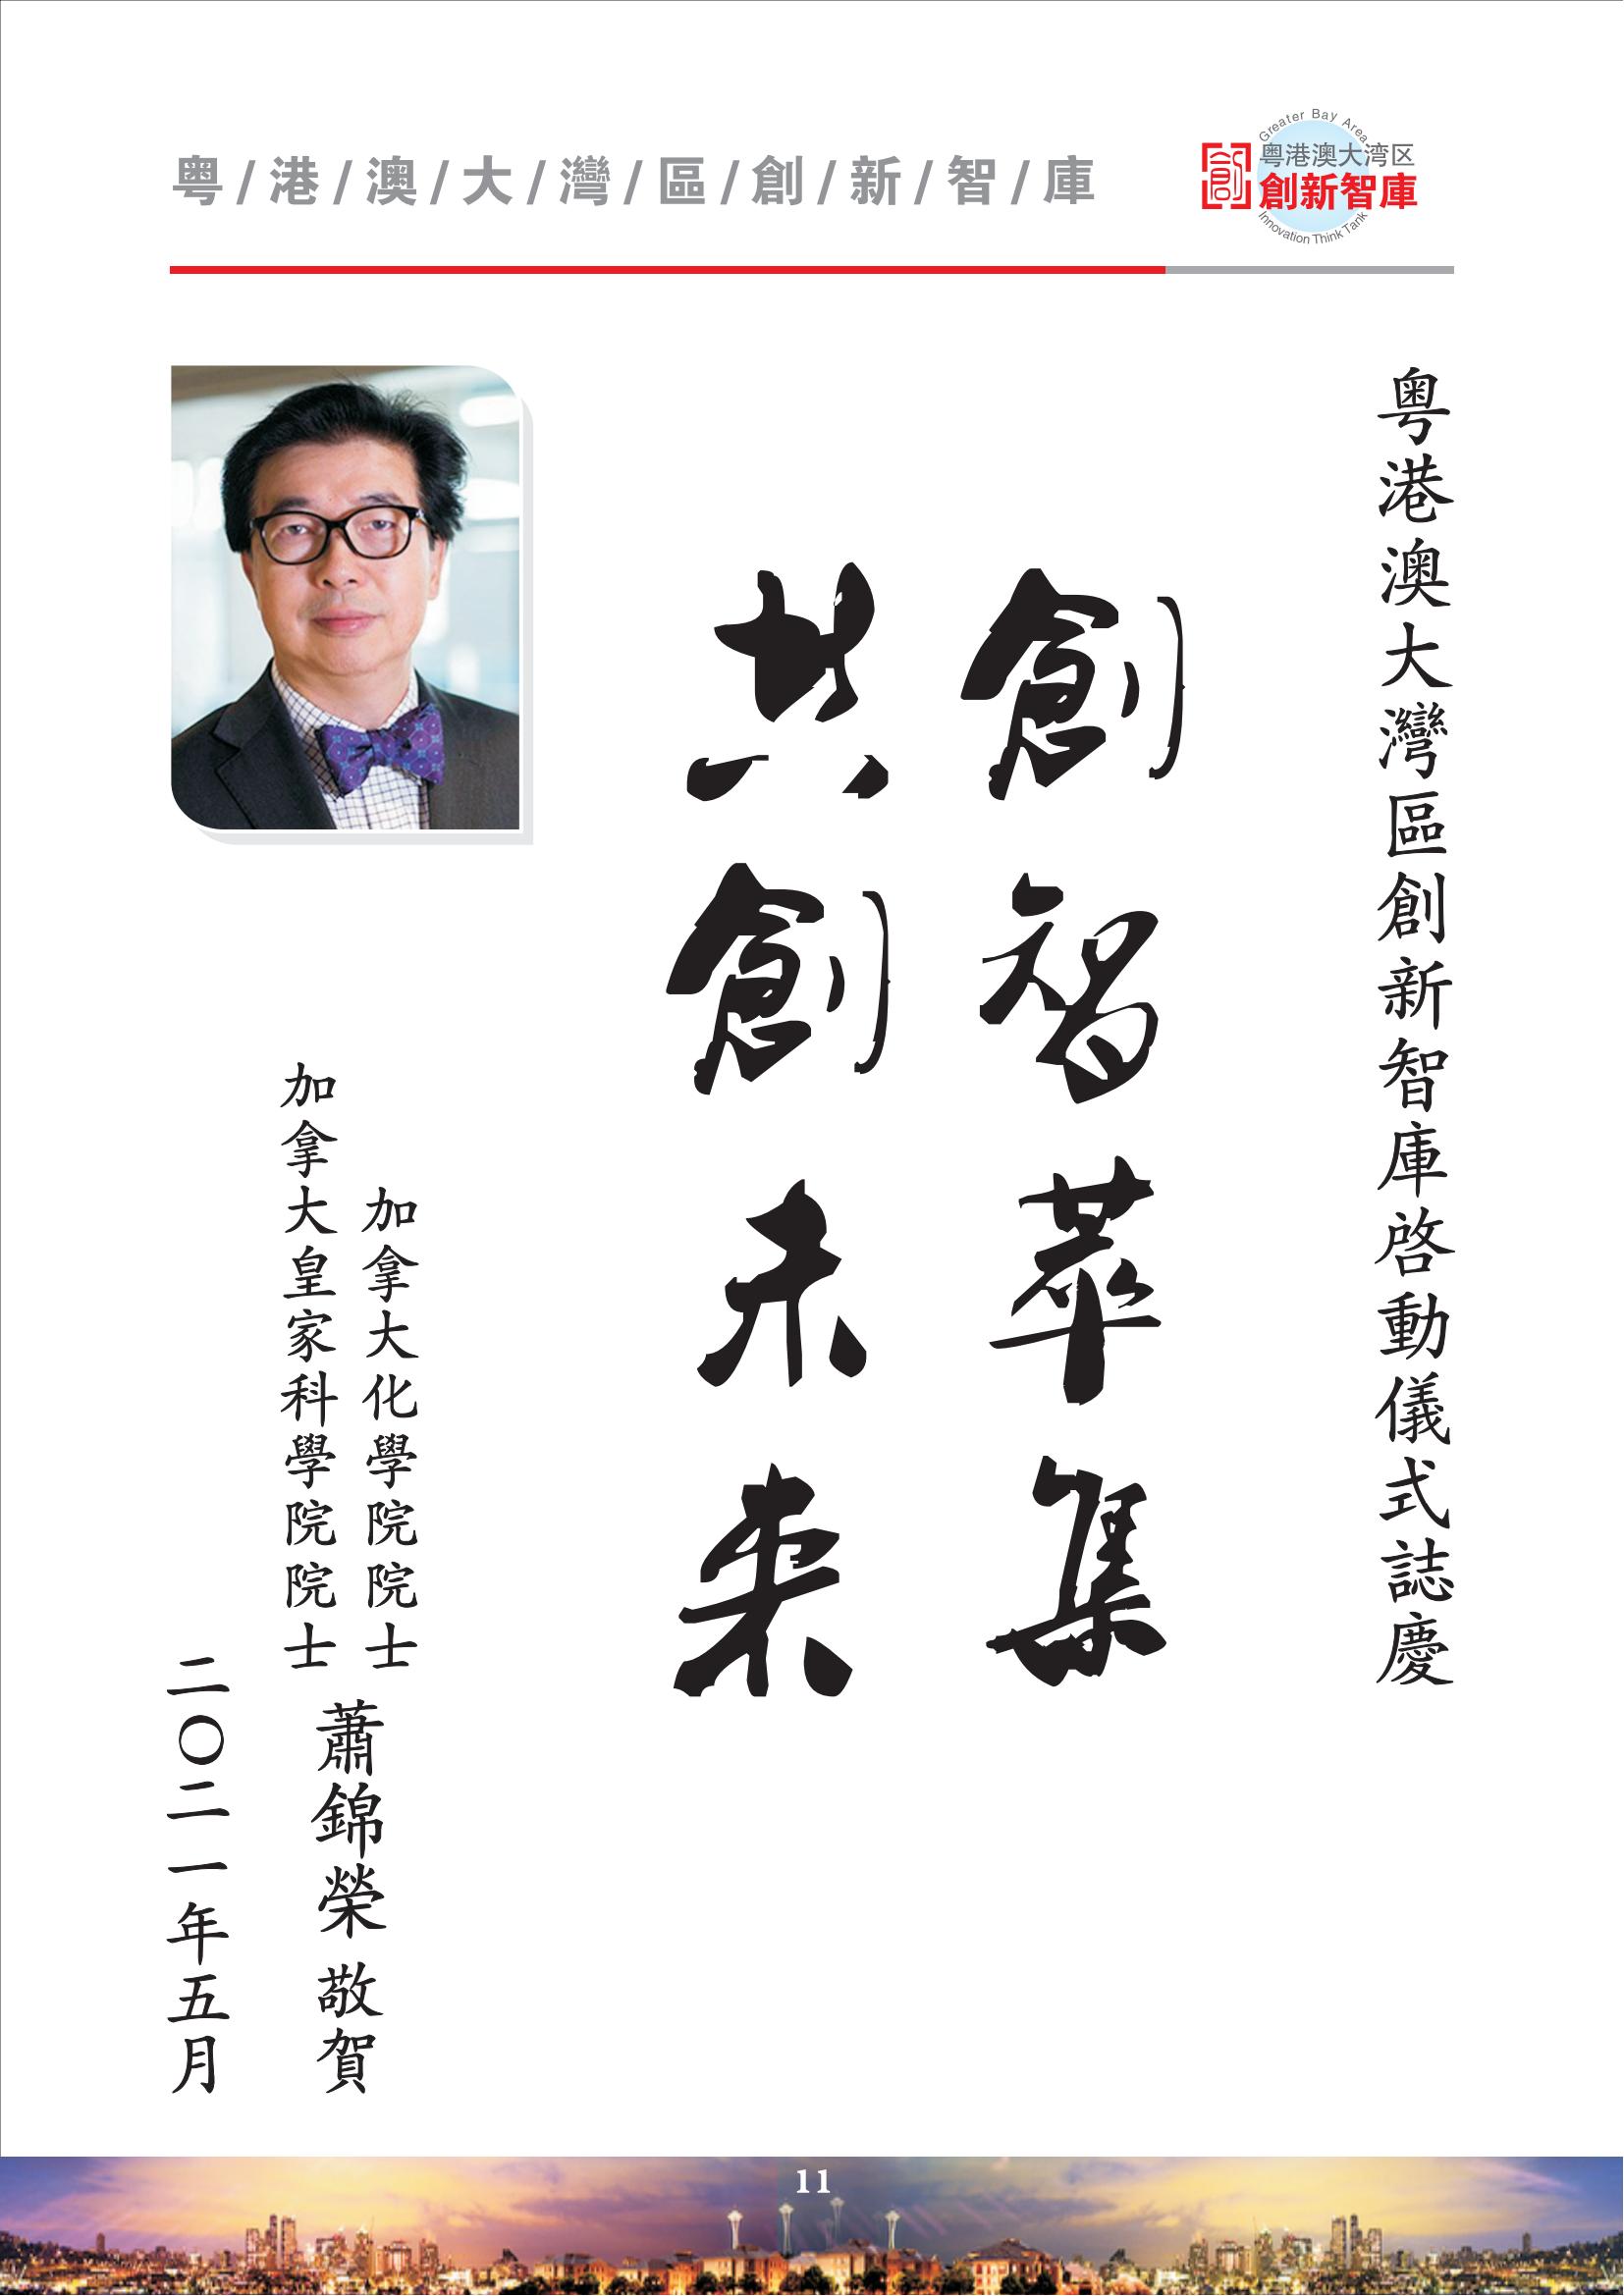 粤/港/澳/大/灣/區/創/新/智/庫
Greater Bay Area
創
粤港澳大湾区
創新智庫
Innovation Think Tank
粤港澳大灣區創新智庫啓動儀式誌慶
創智萃集
共創未来
加拿大化學院院士
加拿大皇家科學院院士
蕭錦榮 敬賀
二〇二一年五月
11